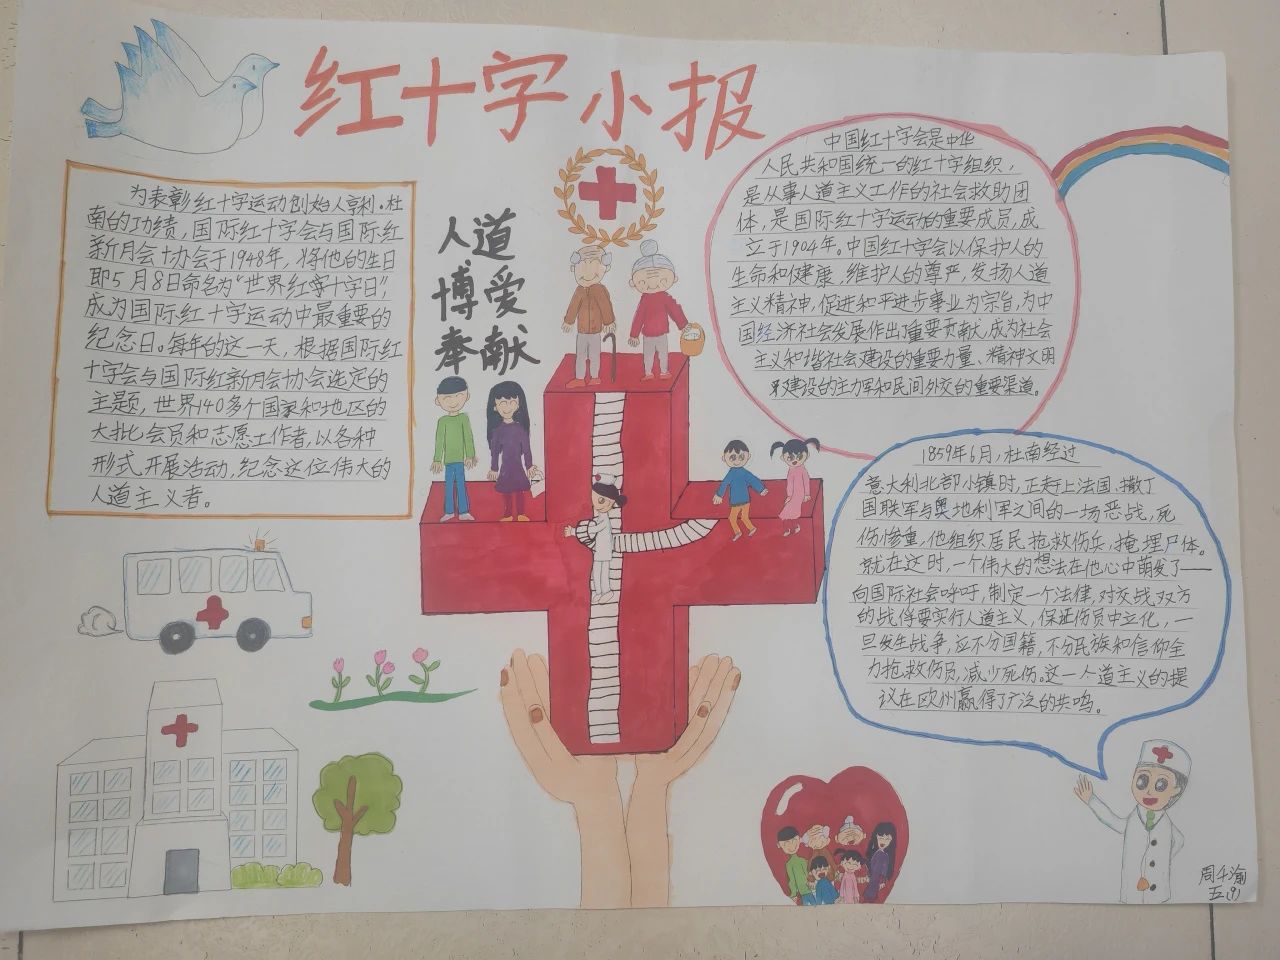 红十字小报
为表彰红十字运动创始人亨利·杜
南的功绩，国际红十字会与国际红
新月会协会于1948年，将他的生日
即5月8日命名为“世界红十字日”，
成为国际红十字运动中最重要的
纪念日。每年的这一天，根据国际红
十字会与国际红新月会协会选定的
主题，世界140多个国家和地区的
大批会员和志愿工作者，以各种
形式，开展活动，纪念这位伟大的
人道主义者。
人道
博爱
奉献
中国红十字会是中华
人民共和国统一的红十字组织，
是从事人道主义工作的社会救助团
体，是国际红十字运动的重要成员，成
立于1904年。中国红十字会以保护人的
生命和健康，维护人的尊严，发扬人道
主义精神，促进和平进步事业为宗旨，为中
国经济社会发展作出重要贡献，成为社会
主义和谐社会建设的重要力量、精神文明
建设的主力军和民间外交的重要渠道。
1859年6月，杜南经过
意大利北部小镇时，正赶上法国、撒丁
国联军与奥地利军之间的一场恶战，死
伤惨重，他组织居民抢救伤兵、掩埋尸体。
就在这时，一个伟大的想法在他心中萌发了——
向国际社会呼吁，制定一个法律，对交战双方
的战俘要实行人道主义，保证伤员中立化，一
旦发生战争，应不分国籍，不分民族和信仰全
力抢救伤员，减少死伤。这一人道主义的提
议在欧州赢得了广泛的共鸣。
五(9)